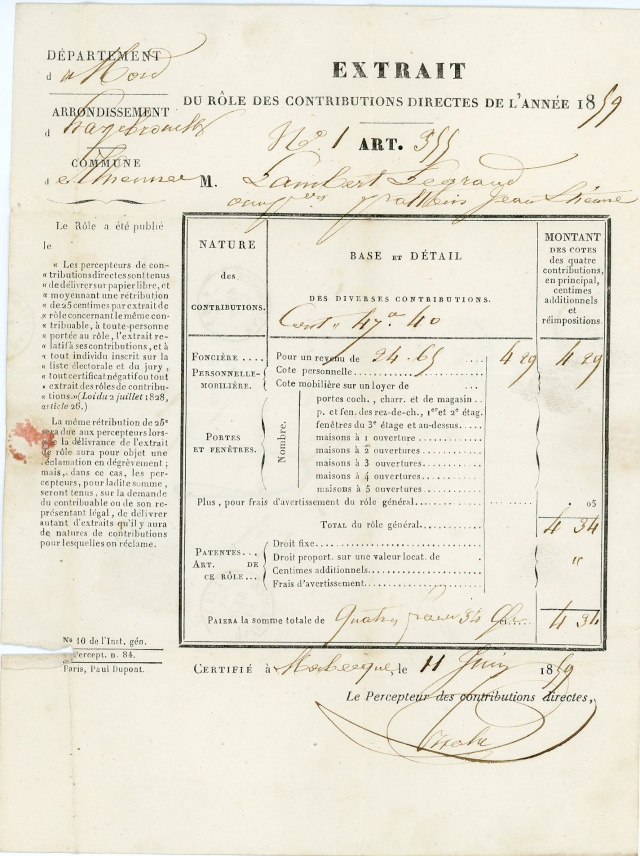 DÉPARTEMENT
d u Nord
ARRONDISSEMENT
d' hazebrouck
COMMUNE
d e thiennes
EXTRAIT
DU RÔLE DES CONTRIBUTIONS DIRECTES DE L'ANNÉE 1859
No. 1 ART. 355
M. Lambert Legrand
Jean
Le Rôle a été publié
le
« Les percepteurs de con-
« tributions directes sont tenus
« de délivrer sur papier libre, et
« moyennant une rétribution
« de 25 centimes par extrait de
« rôle concernant le même con-
« tribuable, à toute personne
« portée au rôle, l'extrait re-
« latif à ses contributions, et à
« tout individu inscrit sur la
« liste électorale et du jury,
« tout certificat négatif ou tout
« extrait des rôles de contribu-
« tions. » (Loi du 2 juillet 1828,
article 26.)
La même rétribution de 25c
sera due aux percepteurs lors-
que la délivrance de l'extrait
de rôle aura pour objet une
réclamation en dégrèvement;
mais, dans ce cas, les per-
cepteurs, pour ladite somme,
seront tenus, sur la demande
du contribuable ou de son re-
présentant légal, de délivrer
autant d'extraits qu'il y aura
de natures de contributions
pour lesquelles on réclame.
No 10 de l'Inst. gén.
Percept. n. 84.
Paris, Paul Dupont.
NATURE
des
CONTRIBUTIONS.
BASE ET DÉTAIL
DES DIVERSES CONTRIBUTIONS.
Cont. 47a 40
MONTANT
DES COTES
des quatre
contributions,
en principal,
centimes
additionnels
et
réimpositions
FONCIÈRE .... Pour un revenu de 24.65 4 29 4 29
PERSONNELLE-
MOBILIÈRE.
Cote personnelle
Cote mobilière sur un loyer de
PORTES
ET FENÊTRES.
Nombre.
portes coch., charr. et de magasin ..
p. et fen. des rez-de-ch., 1er et 2e étag.
fenêtres du 3e étage et au-dessus.....
maisons à 1 ouverture
maisons à 2 ouvertures
maisons à 3 ouvertures
maisons à 4 ouvertures
maisons à 5 ouvertures
Plus, pour frais d'avertissement du rôle général . 05
TOTAL du rôle général 4 34
PATENTES...
ART. DE
CE RÔLE...
Droit fixe
Droit proport. sur une valeur locat. de
Centimes additionnels
Frais d'avertissement
"
PAIERA la somme totale de quatre francs 34 4 34
CERTIFIÉ à Morbecque, le 11 Juin 1859
Le Percepteur des contributions directes,